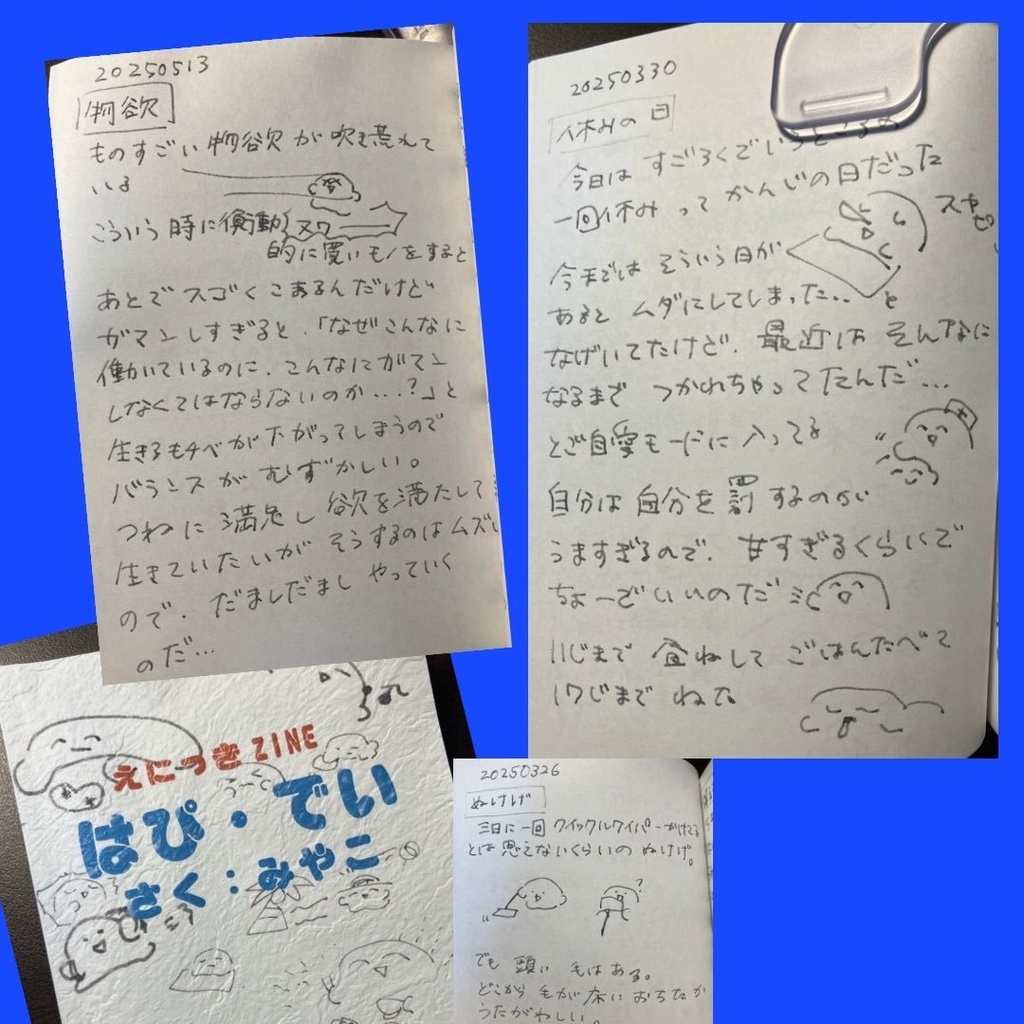 20250513
物欲
ものすごい物欲が吹き荒れて
いる
こういう時に衝動
ヌワ
的に買いモノをすると
あとでスゴくこまるんだけど
ガマンしすぎると、「なぜこんなに
働いているのに、こんなにガマン
しなくてはならないのか...?」と
生きるモチベが下がってしまうので
バランスがむずかしい。
つねに満足し欲を満たして
生きていたいがそうするのはムズい
ので、だましだましやっていく
のだ...
20250330
休みの日
今日はすごろくでいうところの
一回休みってかんじの日だった
スヤピ
今まではそういう日が
あるとムダにしてしまった..と
なげいてたけど、最近はそんなに
なるまでつかれちゃってたんだ...
とご自愛モードに入ってる
自分は自分を罰するのが
うますぎるので、甘すぎるくらいで
ちょーどいいのだ
11じまで昼ねしてごはんたべて
17じまでねた
えにっきZINE
はぴ・でい
さく:みやこ
20250326
ぬけげ
三日に一回クイックルワイパーかけてる
とは思えないくらいのぬけげ。
?
でも頭に毛はある。
どこから毛が床におちたか
うたがわしい。